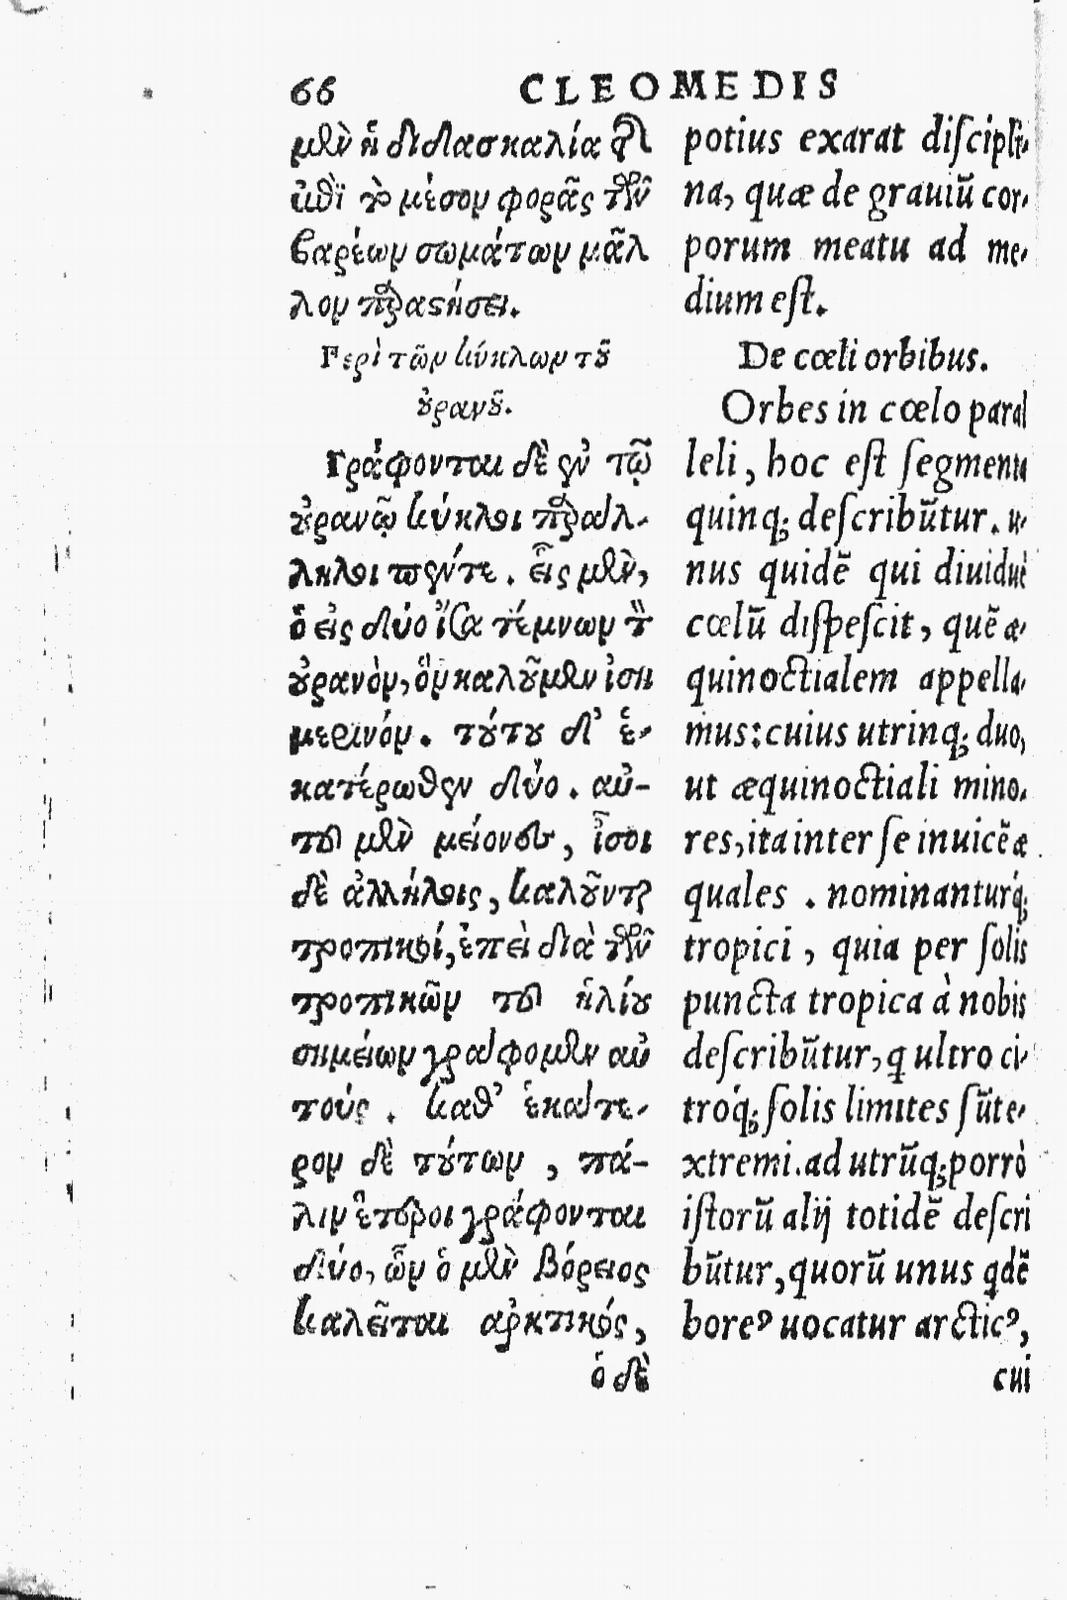 66 CLEOMEDIS
μὲν ἡ διδασκαλία τ͂
ὠθὶ τὸ μέσον φορᾶς τῶν
βαρέων σωμάτων μᾶλ
λον παραστήσει.
Περὶ τῶν κύκλων τοῦ
οὐρανοῦ.
Γράφονται δὲ ἐν τῷ
οὐρανῷ κύκλοι παράλ-
ληλοι πέντε. εἷς μὲν,
ὁ εἰς δύο ἴσα τέμνων τὸν
οὐρανὸν, ὃν καλοῦμεν ἰση
μερινόν. τούτου δ’ ἑ-
κατέρωθεν δύο. αὐ-
τοῦ μὲν μείονες, ἴσοι
δὲ ἀλλήλοις, καλοῦνται
τροπικοί, ἐπεὶ διὰ τῶν
τροπικῶν τοῦ ἡλίου
σημείων γράφομεν αὐ
τούς. καθ’ ἑκάτε-
ρον δὲ τούτων, πά-
λιν ἕτεροι γράφονται
δύο, ὧν ὁ μὲν βόρειος
καλεῖται ἀρκτικός,
ὁ δὲ
potius exarat discipli-
na, quæ de grauiū cor-
porum meatu ad me-
dium est.
De cœli orbibus.
Orbes in cœlo paral
leli, hoc est segmenta
quinq; describūtur. u-
nus quidē qui diuidue
cœlū dispescit, quē æ-
quinoctialem appella-
mus: cuius utrinq; duo,
ut æquinoctiali mino-
res, ita inter se inuicē æ
quales. nominanturq́;
tropici, quia per solis
puncta tropica à nobis
describūtur, q ultro ci-
troq́; solis limites sūt e-
xtremi. ad utrūq; porrò
istorū alij totidē descri
būtur, quorū unus qdē
boreꝰ uocatur arcticꝰ,
cui